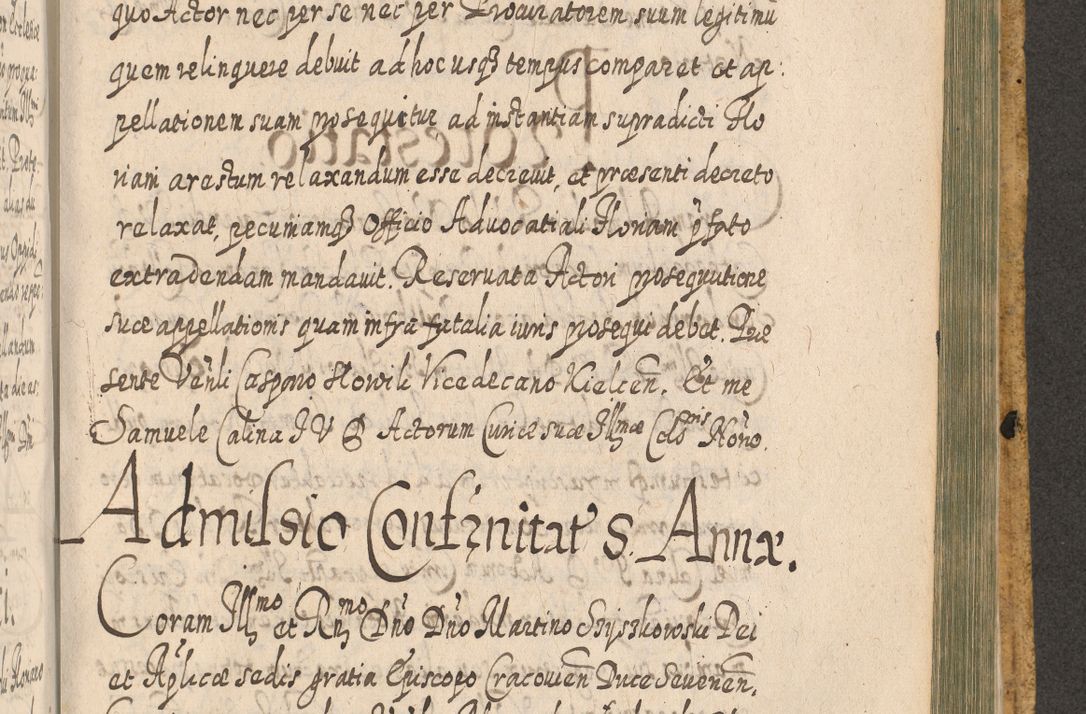 quo Actor nec per se nec per Procuratorem suum legitimū
quem relinquere debuit ad hoc usqȝ tempus comparet et ap:
pellationem suam prosequitur ad instantiam supradicti Flo
riani arestum relaxandum esse decrevit, et præsenti decreto
relaxat, pecuniamqȝ Officio Advocatiali Floriam ÿfato
extradendam mandavit. Reservata Actori prosequutione
suæ appellationis quam infra fatalia iuris prosequi debet. Præ
sente Vēnli Casparo Howili Vicedecano Kielceñ. Et me
Samuele Calina I V D Actorum Curiæ suæ Illmæ Celsnis Noto.
Admissio Confrnitat s. Annæ.
Coram Illmo et Rñmo Dño Dño Martino Szyszkowski Dei
et Aplicæ sedis gratia Episcopo Cracovieñ Duce Severieñ.